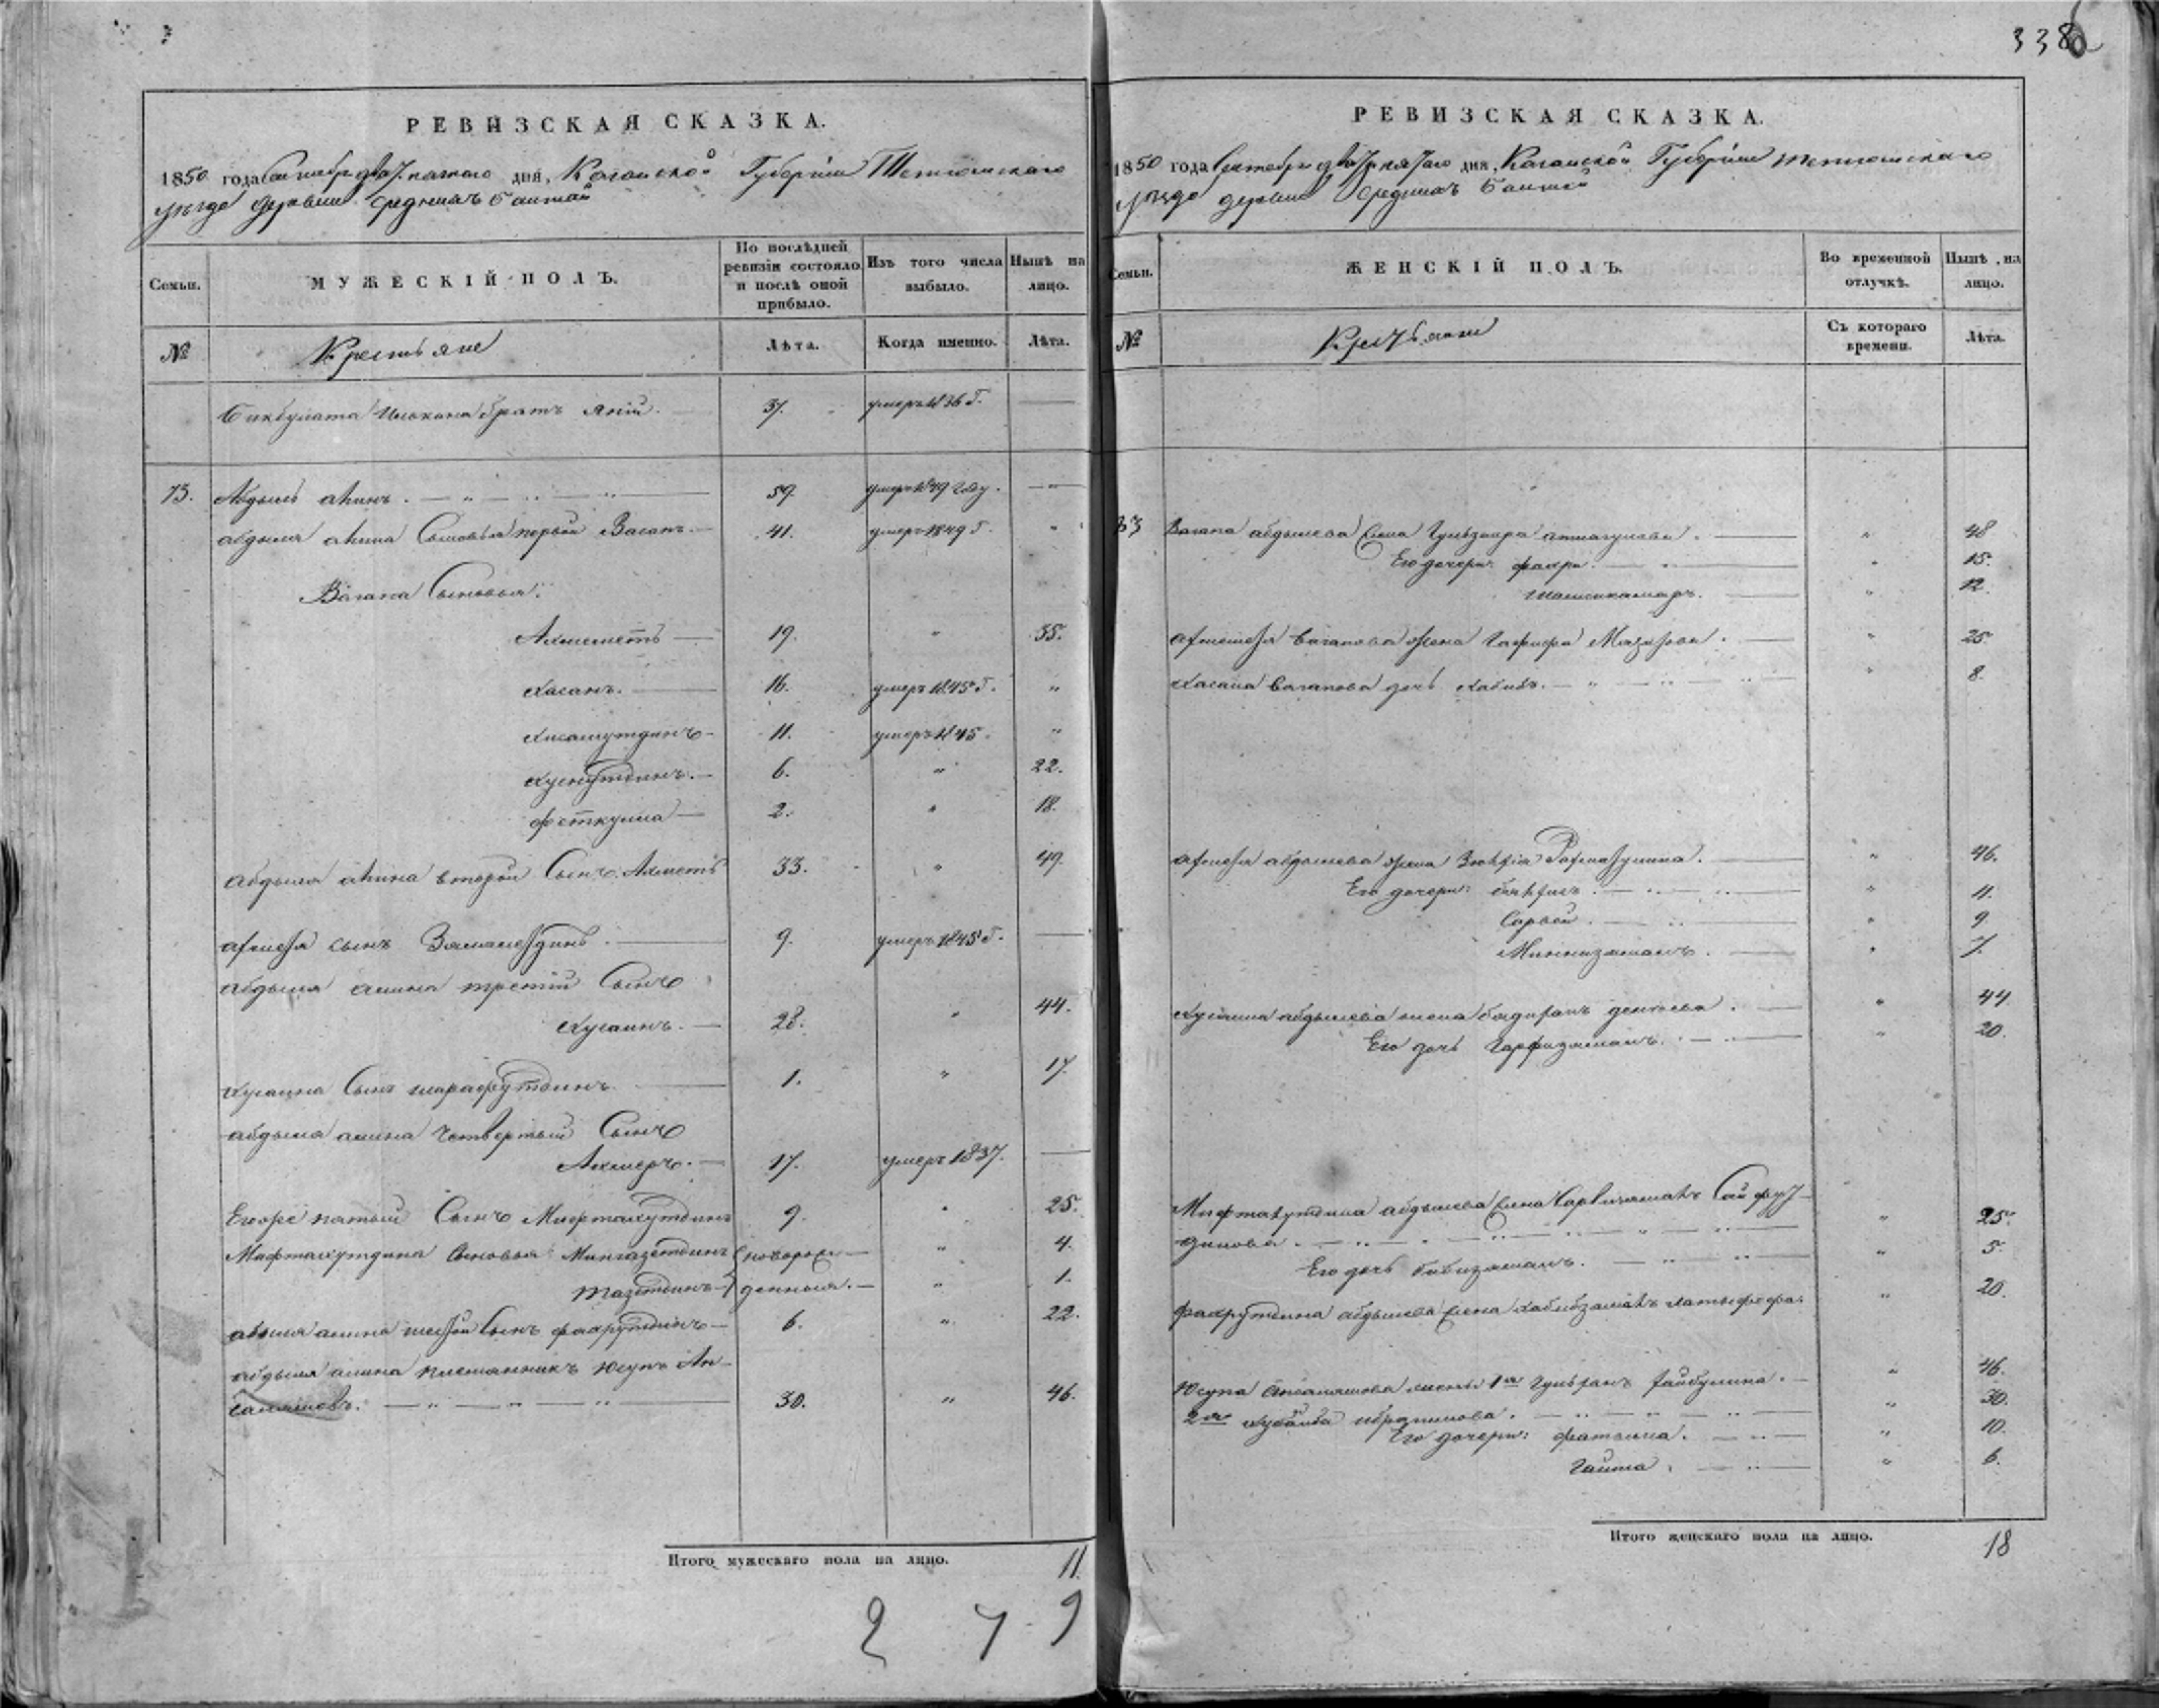 3386
РЕВИЗСКАЯ СКАЗКА.
1850 года Октября двадцатаго дня, Казанской Губерніи Тетюшскаго
уезда деревни Среднихъ Балтай
Семьи.
МУЖЕСКІЙ ПОЛЪ.
По послѣдней ревизіи состояло и послѣ оной прибыло.
Изъ того числа выбыло.
Нынѣ на лицо.
№
Крестьяне
Лѣта.
Когда именно.
Лѣта.
Бикбулата братъ Яній. 37. умеръ 1836 Г.
73. Абдылъ Аминъ. 59. умеръ 1849 году.
Абдыля Амина Сыновья первой Вагапъ. 41. умеръ 1849 Г.
Вагапа Сыновья:
Ахмеметь 19. " 35.
Хасанъ. 16. умеръ 1845 Г. "
Хисамутдинъ 11. умеръ 1845. "
Хуснутдинъ. 6. " 22.
Феткулла 2. " 18.
Абдыля Амина второй Сынъ Ахметь 33. " 49.
Ахметя сынъ Замалетдинъ. 9. умеръ 1845 Г.
Абдыля Амина третій Сынъ
Хусаинъ. 28. " 44.
Хусаина Сынъ Шарафутдинъ. 1. " 17.
Абдыля Амина Четвертый Сынъ
Ахмеръ. 17. умеръ 1837.
Его же пятый Сынъ Мифтахутдинъ 9. " 25.
Мифтахутдина Сыновья Мингазетдинъ новорож- " 4.
Тазетдинъ денныя. " 1.
Абдыля Амина шестой Сынъ Фахрутдинъ 6. " 22.
Абдыля Амина племянникъ Юсупъ Аб-
салямовъ. 30. " 46.
Итого мужескаго пола на лицо. 11.
2 7 9
РЕВИЗСКАЯ СКАЗКА.
1850 года Октября двадцатаго дня, Казанской Губерніи Тетюшскаго
уезда деревни Среднихъ Балтай
Семьи.
ЖЕНСКІЙ ПОЛЪ.
Во временной отлучкѣ.
Нынѣ на лицо.
№
Крестьяне
Съ котораго времени.
Лѣта.
73 Вагапа Абдылева жена Гульзюгра " 48
Его дочери: Фахри. " 15.
Шамсикамаръ. " 12.
Ахметя Вагапова жена Гафифа Мазитова. " 25
Хасана Вагапова дочь Хабиба. " 8.
Ахметя Абдылева жена Зюгрія Рахматулина. " 46.
Его дочери: " 11.
Сарвѣй. " 9
Миннизяманъ. " 7.
Хусаина Абдылева жена Бадиранъ " 44
Его дочь Гарфизяманъ. " 20.
Мифтахутдина Абдылева жена Сарвизяманъ Сайфут-
динова. " 25.
Его дочь Бибизяманъ. " 5.
Фахрутдина Абдылева жена Хабибзаманъ " 20.
Юсупа Абсалямова жены 1я Зайбулина. " 46.
2я Хубаиба Ибрагимова. " 30.
Его дочери: Фатыма. " 10.
Гайша. " 6.
Итого женскаго пола на лицо. 18